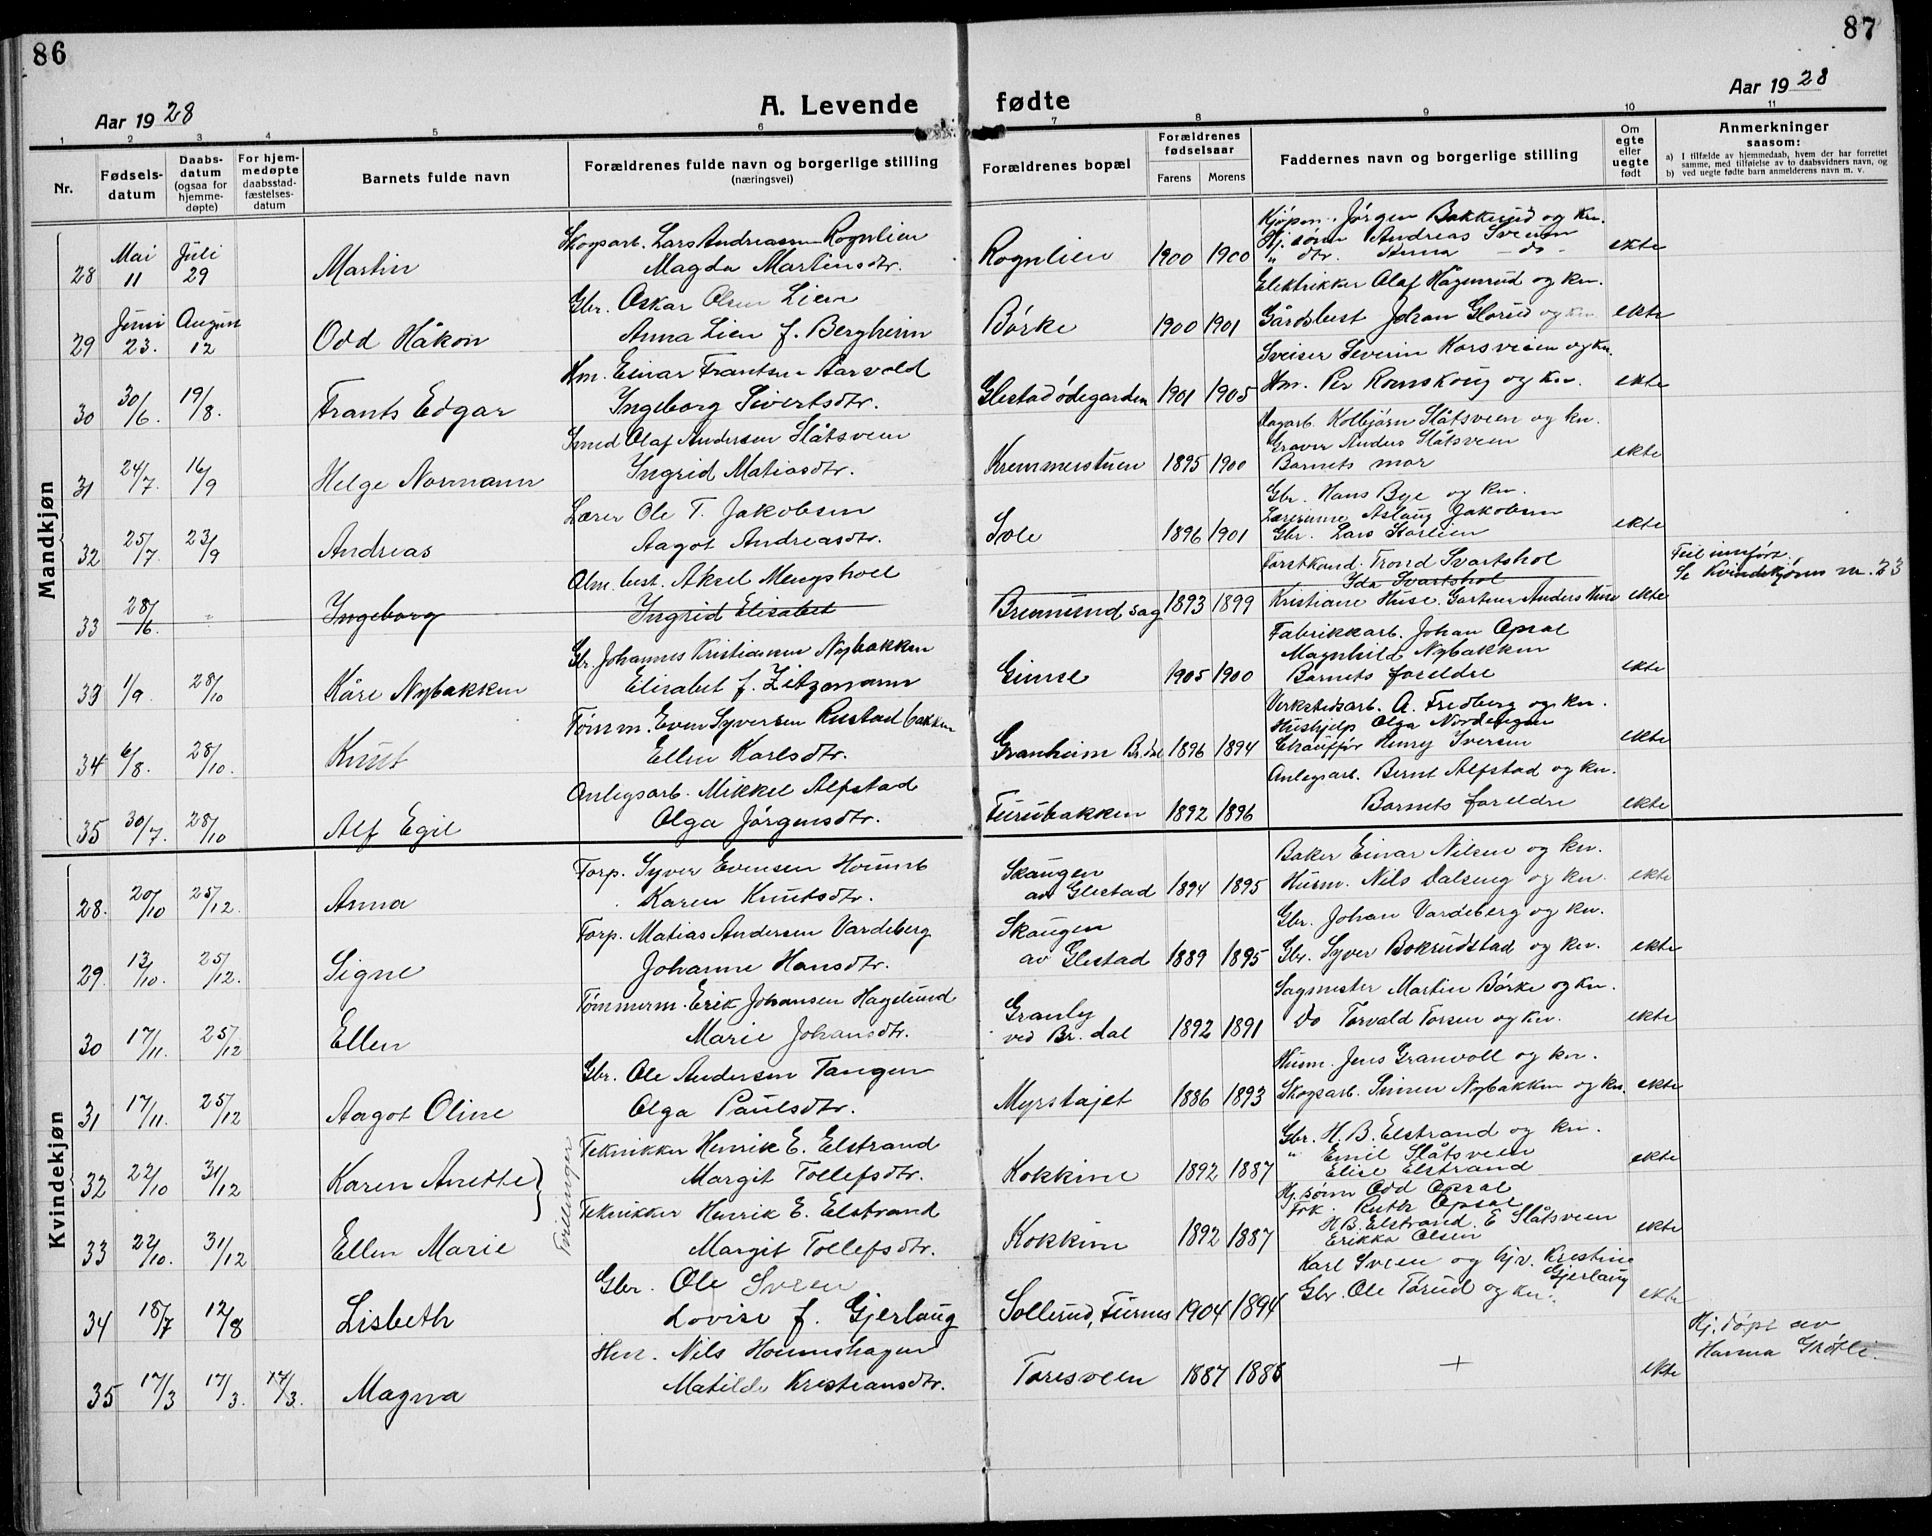 86
Aar 1928
A. Levende
1 2 3 4 5 6
Nr.
Fødsels-
datum
Daabs-
datum
(ogsaa for
hjemme-
døpte)
For hjem-
medøpte
daabsstad-
fæstelses-
datum
Barnets fulde navn
Forældrenes fulde navn og borgerlige stilling
(næringsvei)
87
fødte
Aar 1928
7 8 9 10 11
Forældrenes bopæl
Forældrenes
fødselsaar
Farens Morens
Faddernes navn og borgerlige stilling
Om
egte
eller
uegte
født
Anmerkninger
saasom:
a) I tilfælde av hjemmedaab, hvem der har forrettet
samme, med tilføielse av to daabsvidners navn, og
b) ved uegte fødte barn anmelderens navn m. v.
Mandkjøn
28 Mai 11 Juli 29 Martin
Skogsarb. Lars Andreassen Rognlien
Magda Martinsdtr.
Rognlien 1900 1900
Kjøpm. Jørgen Bakkerud og kn.
Hj. sønn Andreas Sveum
" dtr. Anna - do -
ekte
29 Juni 23. August 12 Odd Håkon
Gbr. Oskar Olsen Lien
Anna Lien f. Bergheim
Børke 1900 1901
Elektrikker Olaf Hågenrud og kn.
Gårdsbest Johan Glorud og kn
ekte
30 30/6. 19/8. Frants Edgar
Hm. Einar Frantsen Aarvold
Ingeborg Sivertsdtr.
Glestadødegården 1901 1905
Sveiser Severin Korsveien og kn.
Hm. Per Ramskoug og kn.
ekte
31 24/7. 16/9 Helge Normann
Smed Olaf Andersen Slåtsveen
Ingrid Matiasdtr.
Kremmerstuen 1895 1900
Dagarb. Kolbjørn Slåtsveen og kn.
Graver Anders Slåtsveen
Barnets mor
ekte
32 25/7. 23/9 Andreas
Lærer Ole T. Jakobsen
Aagot Andreasdtr.
Sole 1896 1901
Gbr. Hans Bye og kn.
Lærerinne Aslaug Jakobsen
Gbr. Lars Storlien
ekte
33 28/6. " Ingeborg
Alm. best. Aksel Mengshoel
Ingrid Elisabet
Bremund sag 1893 1899
Forstkand. Trond Svartshol
Ida Svartshol
Kristiane Huse. Gartner Anders Huse
ekte
Feil innført.
Se Kvindekjønn nr. 23
33 1/9. 28/10 Kåre Nybakken
Gbr. Johannes Kristiansen Nybakken
Elisabet f. Zitzmann
Gimse 1905 1900
Fabrikkarb. Johan Opsal
Magnhild Nybakken
Barnets foreldre
ekte
34 6/8. 28/10. Knut
Tømm. Even Syversen Rustadbakken
Ellen Karlsdtr.
Granheim Br.dal 1896 1894
Verkstedsarb. A. Fredberg og kn.
Hushjelp Olga Nordengen
Chauffør Henry Iversen
ekte
35 30/7. 28/10 Alf Egil
Anlegsarb. Mikkel Alfstad
Olga Jørgensdtr.
Furubakken 1892 1896
Anlegsarb. Bernt Alfstad og kn.
Barnets foreldre
ekte
Kvindekjøn
28. 20/10 25/12. Anna
Forp. Syver Evensen Houmb
Karen Knutsdtr.
Skaugen
av Glestad 1894 1895
Baker Einar Nilsen og kn.
Husm. Nils Dalseng og kn.
ekte
29. 13/10. 25/12. Signe
Forp. Matias Andersen Vardeberg
Johanne Hansdtr.
Skaugen
av Glestad 1889 1895
Gbr. Johan Vardeberg og kn.
Gbr. Syver Bokrudstad og kn.
ekte
30 17/11. 25/12 Ellen
Tømmerm. Erik Johansen Haglund
Marie Johansdtr.
Granly
ved Br. dal 1892 1891
Sagmester Martin Børke og kn.
Do Torvald Torsen og kn.
ekte
31 17/11. 25/12 Aagot Oline
Gbr. Ole Andersen Tangen
Olga Paulsdtr.
Myrstajet 1886 1893
Husm. Jens Granvoll og kn.
Skogsarb. Simen Nybakken og kn.
ekte
32 22/10 31/12 Karen Anette
Tvillinger
Teknikker Henrik E. Elstrand
Margit Tollefsdtr.
Kokkim 1892 1887
Gbr. H. B. Elstrand og kn.
" Emil Slåtsveen
Elise Elstrand
ekte
33 22/10. 31/12 Ellen Marie
Teknikker Henrik E. Elstrand
Margit Tollefsdtr.
Kokkim 1892 1887
Hj. sønn Odd Opsal
Frk. Ruth Opsal
H.B. Elstrand. E Slåtsveen
Erikka Olsen
ekte
34 18/7 12/8 Lisbeth
Gbr. Ole Sveen
Lovise f. Gjerlaug
Sollerud, Furnes 1904 1894
Karl Sveen og hjv. Kristine
Gjerlaug
Gbr. Ole Torud og kn.
ekte
35 17/3 17/3. 17/3. Magna
Hm. Nils Houmshagen
Matilde Kristiansdtr.
Toresveen 1887 1888
+
ekte
Hj. døpt av
Hanna Grøtli.